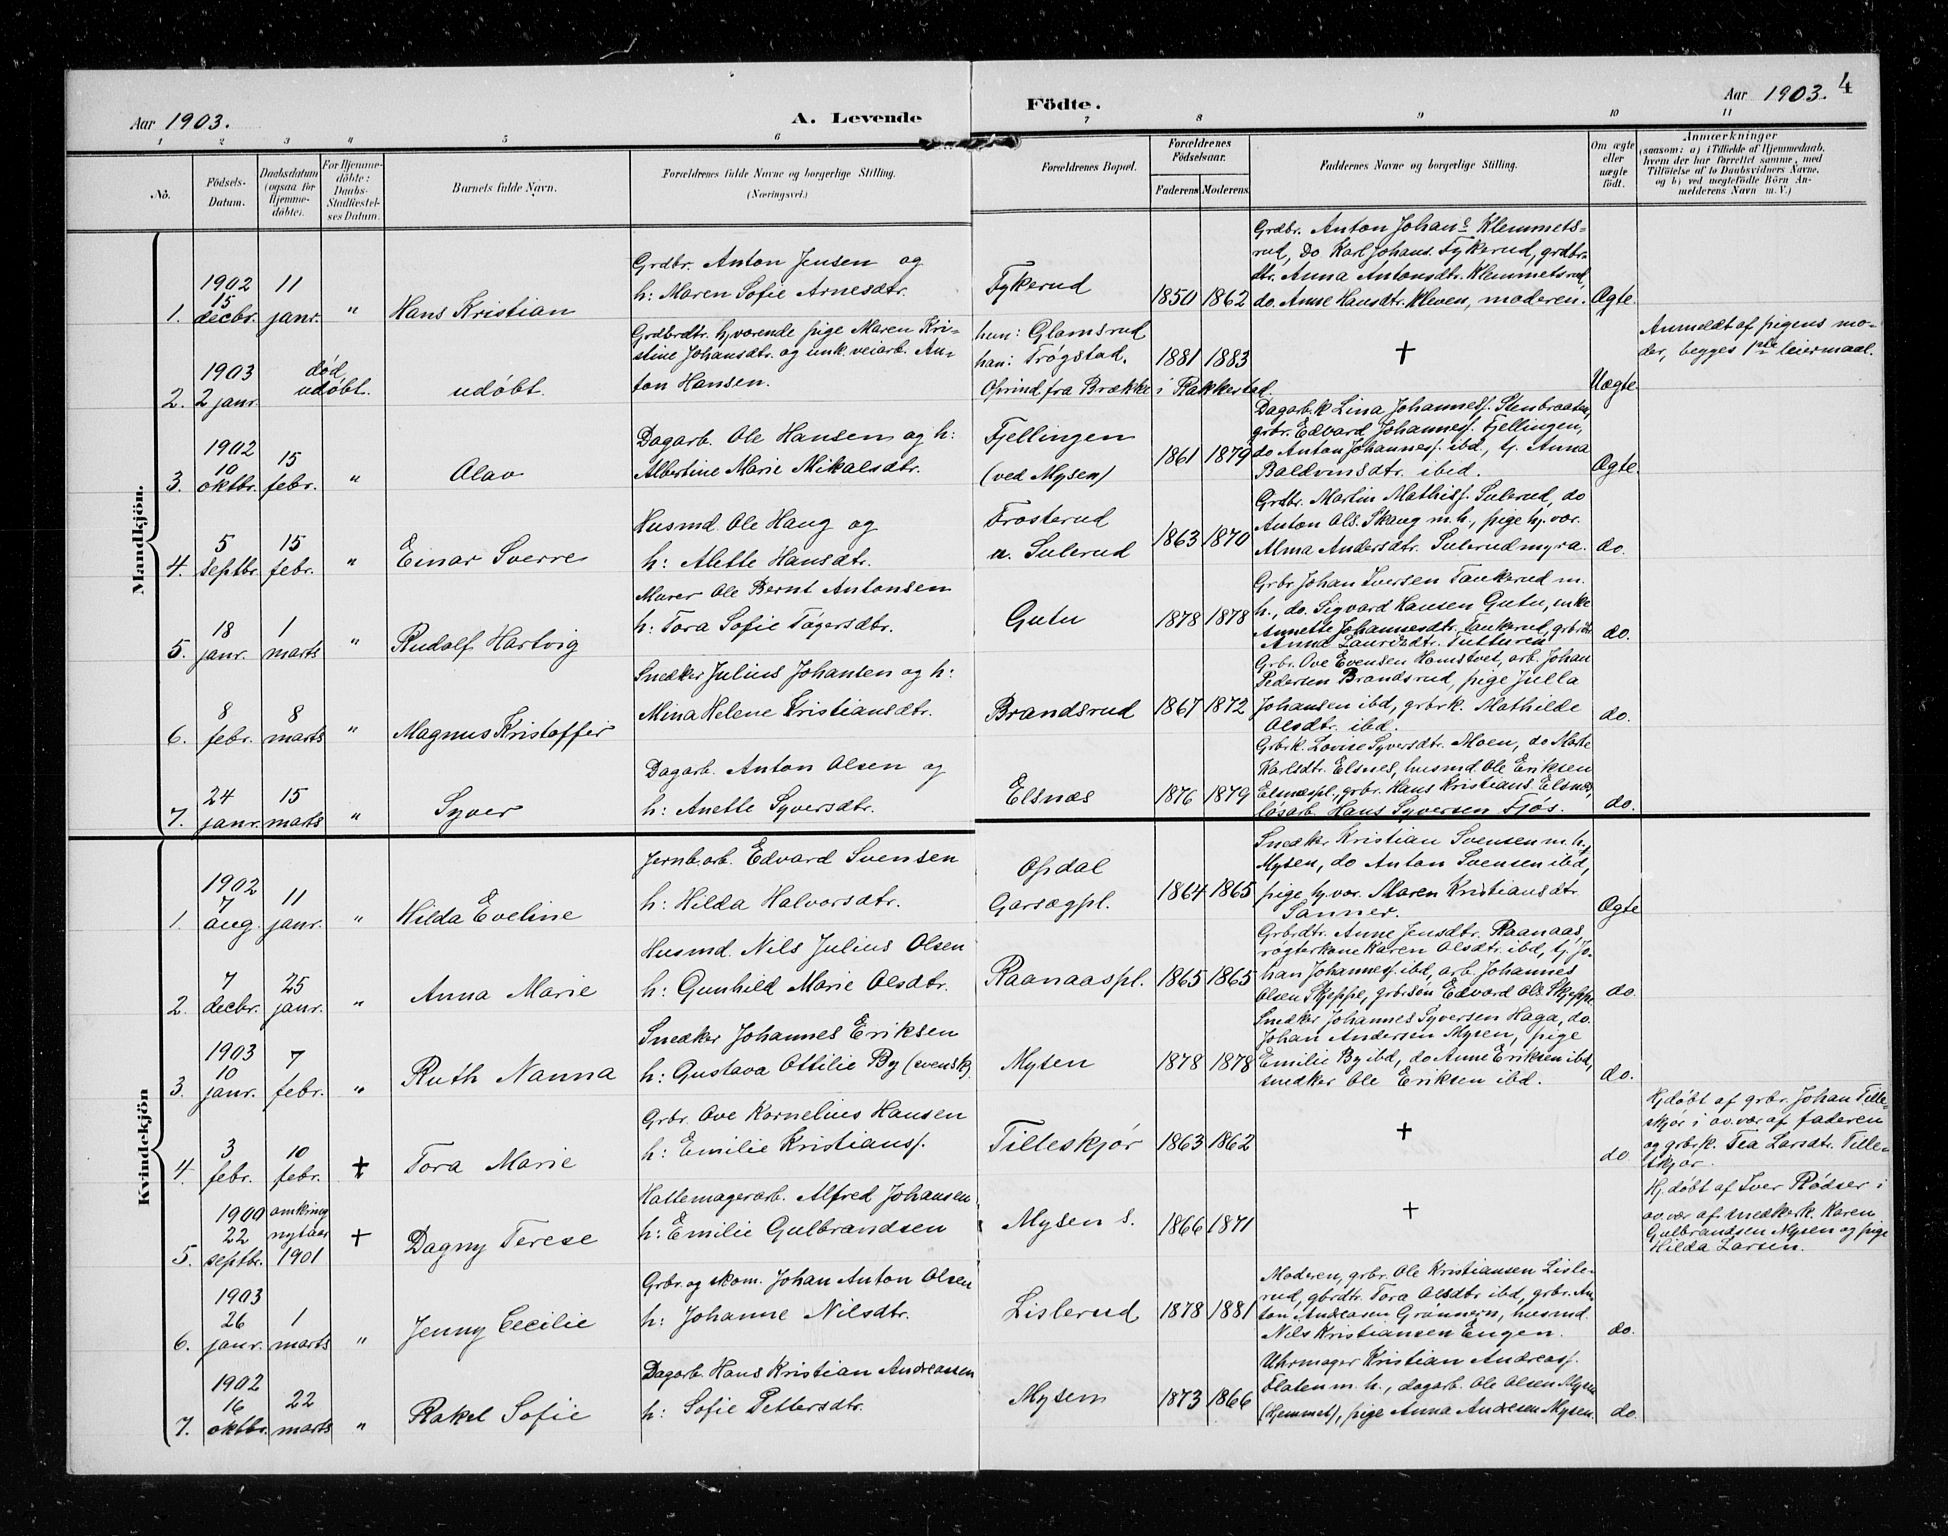 Aar 1903.
A. Levende
Födte.
Aar 1903. 4
1 2 3 4 5 6 7 8 9 10 11
No.
Födsels-
Datum.
Daabsdatum
(ogsaa for
Hjemme-
døbte).
For Hjemme-
døbte:
Daabs-
Stadfæstel-
ses Datum.
Barnets fulde Navn.
Forældrenes fulde Navne og borgerlige Stilling.
(Næringsvei.)
Forældrenes Bopæl.
Forældrenes
Födselsaar.
Faderens. Moderens.
Faddernes Navne og borgerlige Stilling.
Om ægte
eller
uægte
født.
Anmærkninger
(saasom: a) i Tilfælde af Hjemmedaab,
hvem der har forrettet samme, med
Tilføielse af to Daabsvidners Navne,
og b) ved uægtefødte Börn An-
melderens Navn m. V.)
Mandkjön.
1.
1902
15
decbr.
11
janr.
"
Hans Kristian
Grdbr. Anton Jensen og
h: Maren Sofie Arnesdtr.
Fykerud
1850 1862
Grdbr. Anton Johans. Klemmets-
rud, do Karl Johans. Fykerud, grdbr-
dtr. Anna Antonsdtr. Klemmetsrud,
do. Anne Hansdtr. Kleven, moderen.
Ægte
2.
1903
2 janr.
død
udøbt.
udøbt.
Grdbrdtr. hj.værende pige Maren Kri-
stine Johansdtr. og unk. veiarb. An-
ton Hansen.
hun: Glamsrud
han: Trøgstad.
Oprind. fra Brække i Rakkestad.
1881 1883
†
Uægte
Anmeldt af pigens mo-
der, begges 1ste leiermaal.
3.
1902
10
oktbr.
15
febr.
"
Olav
Dagarb. Ole Hansen og h:
Albertine Marie Mikalsdtr.
Fjellingen
(ved Mysen)
1861 1879
Dagarb.k Lina Johannesf. Stenbraaten,
grbr. Edvard Johannesf. Fjellingen,
do Anton Johannesf. ibd, tj. Anna
Baldvinsdtr. ibid.
Ægte
4.
5
septbr.
15
febr.
"
Einar Sverre
Husmd. Ole Haug og
h: Alette Hansdtr.
Frosterud
u. Sulerud
1863 1870
Grdbr. Martin Mathisf. Sulerud, do
Anton Ols. Skaug m.h., pige hj.vær.
Alma Andersdtr. Sulerudmyra.
do.
5.
18
janr.
1
marts
"
Rudolf Hartvig
Murer Ole Bernt Antonsen
h: Tora Sofie Tøgersdtr.
Gutu
1878 1878
Grbr Johan Iversen Taukerud m.
h., do. Sigvard Hansen Gutu, enke
Annette Johannesdtr. Taukerud, grbrdtr.
Anna Lauritzdtr. Tutturen.
do.
6.
8
febr.
8
marts
"
Magnus Kristoffer
Snedker Julius Johansen og h:
Mina Helene Kristiansdtr.
Brandsrud
1867 1872
Grbr. Ove Evensen Homstvet, arb. Johan
Pedersen Brandsrud, pige Julla
Johansen ibd, grbrk. Mathilde
Olsdtr. ibd.
do.
7.
24
janr.
15
marts
"
Syver
Dagarb. Anton Olsen og
h: Anette Syversdtr.
Elsnæs
1876 1879
Grbrk. Lovise Syversdtr. Moen, do Marte
Karlsdtr. Elsnes, husmd. Ole Eriksen
Elsnæspl., grbr. Hans Kristians. Elsnes,
løsarb. Hans Syversen Fjøs.
do.
Kvindekjön
1.
1902
7
aug.
11
janr.
"
Hilda Eveline
Jernb.arb. Edvard Svensen
h: Hilda Halvorsdtr.
Opdal
Garsægpl.
1864 1865
Snedker Kristian Svensen m.h.,
Mysen, do Anton Svensen ibd,
pige hj.vær. Maren Kristiansdtr.
Sanner.
Ægte
2.
7
decbr.
25
janr.
"
Anna Marie
Husmd. Nils Julius Olsen
h: Gunhild Marie Olsdtr.
Raanaaspl.
1865 1865
Grbrdtr. Anne Jensdtr. Raanaas,
røgterkone Karen Olsdtr. ibd, tj. Jo-
han Johannesf. ibd, arb. Johannes
Olsen Skjeppe, grbrsøn Edvard Ols. Skjeppe.
do.
3.
1903
10
janr.
7
febr.
"
Ruth Nanna
Snedker Johannes Eriksen
h: Gustava Ottilie By (svensk).
Mysen
1878 1878
Snedker Johannes Syversen Haga, do.
Johan Andersen Mysen, pige
Emilie By ibd, do Anne Eriksen ibd,
snedker Ole Eriksen ibd.
do.
4.
3
febr.
10
febr.
†
Tora Marie
Grbr. Ove Kornelius Hansen
h: Emilie Kristiansf.
Tilleskjør
1863 1862
†
do
Hj.døbt af grbr. Johan Tille-
skjør i ov.vær af faderen
og grbrk. Tea Larsdtr. Tille-
skjør.
5.
1900
22
septbr.
omkring
nytaar
1901
†
Dagny Terese
Hattemagerarb. Alfred Johansen
h: Emilie Gulbrandsen
Mysen s.
1866 1871
†
Hj.døbt af Iver Rødser i
ov.vær af snedkerk. Karen
Gulbrandsen Mysen og pige
Hilda Larsen.
6.
1903
26
janr.
1
marts
"
Jenny Cecilie
Grbr. og skom. Johan Anton Olsen
h: Johanne Nilsdtr.
Lislerud
1878 1881
Moderen, grbr. Ole Kristiansen Lisle-
rud, gbrdtr. Tora Olsdtr ibd, grbr. An-
ton Andreasen Grønnern, husmd.
Nils Kristiansen Engen.
do.
7.
1902
16
oktbr.
22
marts
"
Rakel Sofie
Dagarb. Hans Kristian Andreassen
h: Sofie Pettersdtr.
Mysen
1873 1866
Uhrmager Kristian Andreasf.
Flaten m. h., dagarb. Ole Olsen Mysen
(Hjemmet), pige Anna Andresen Mysen.
do.